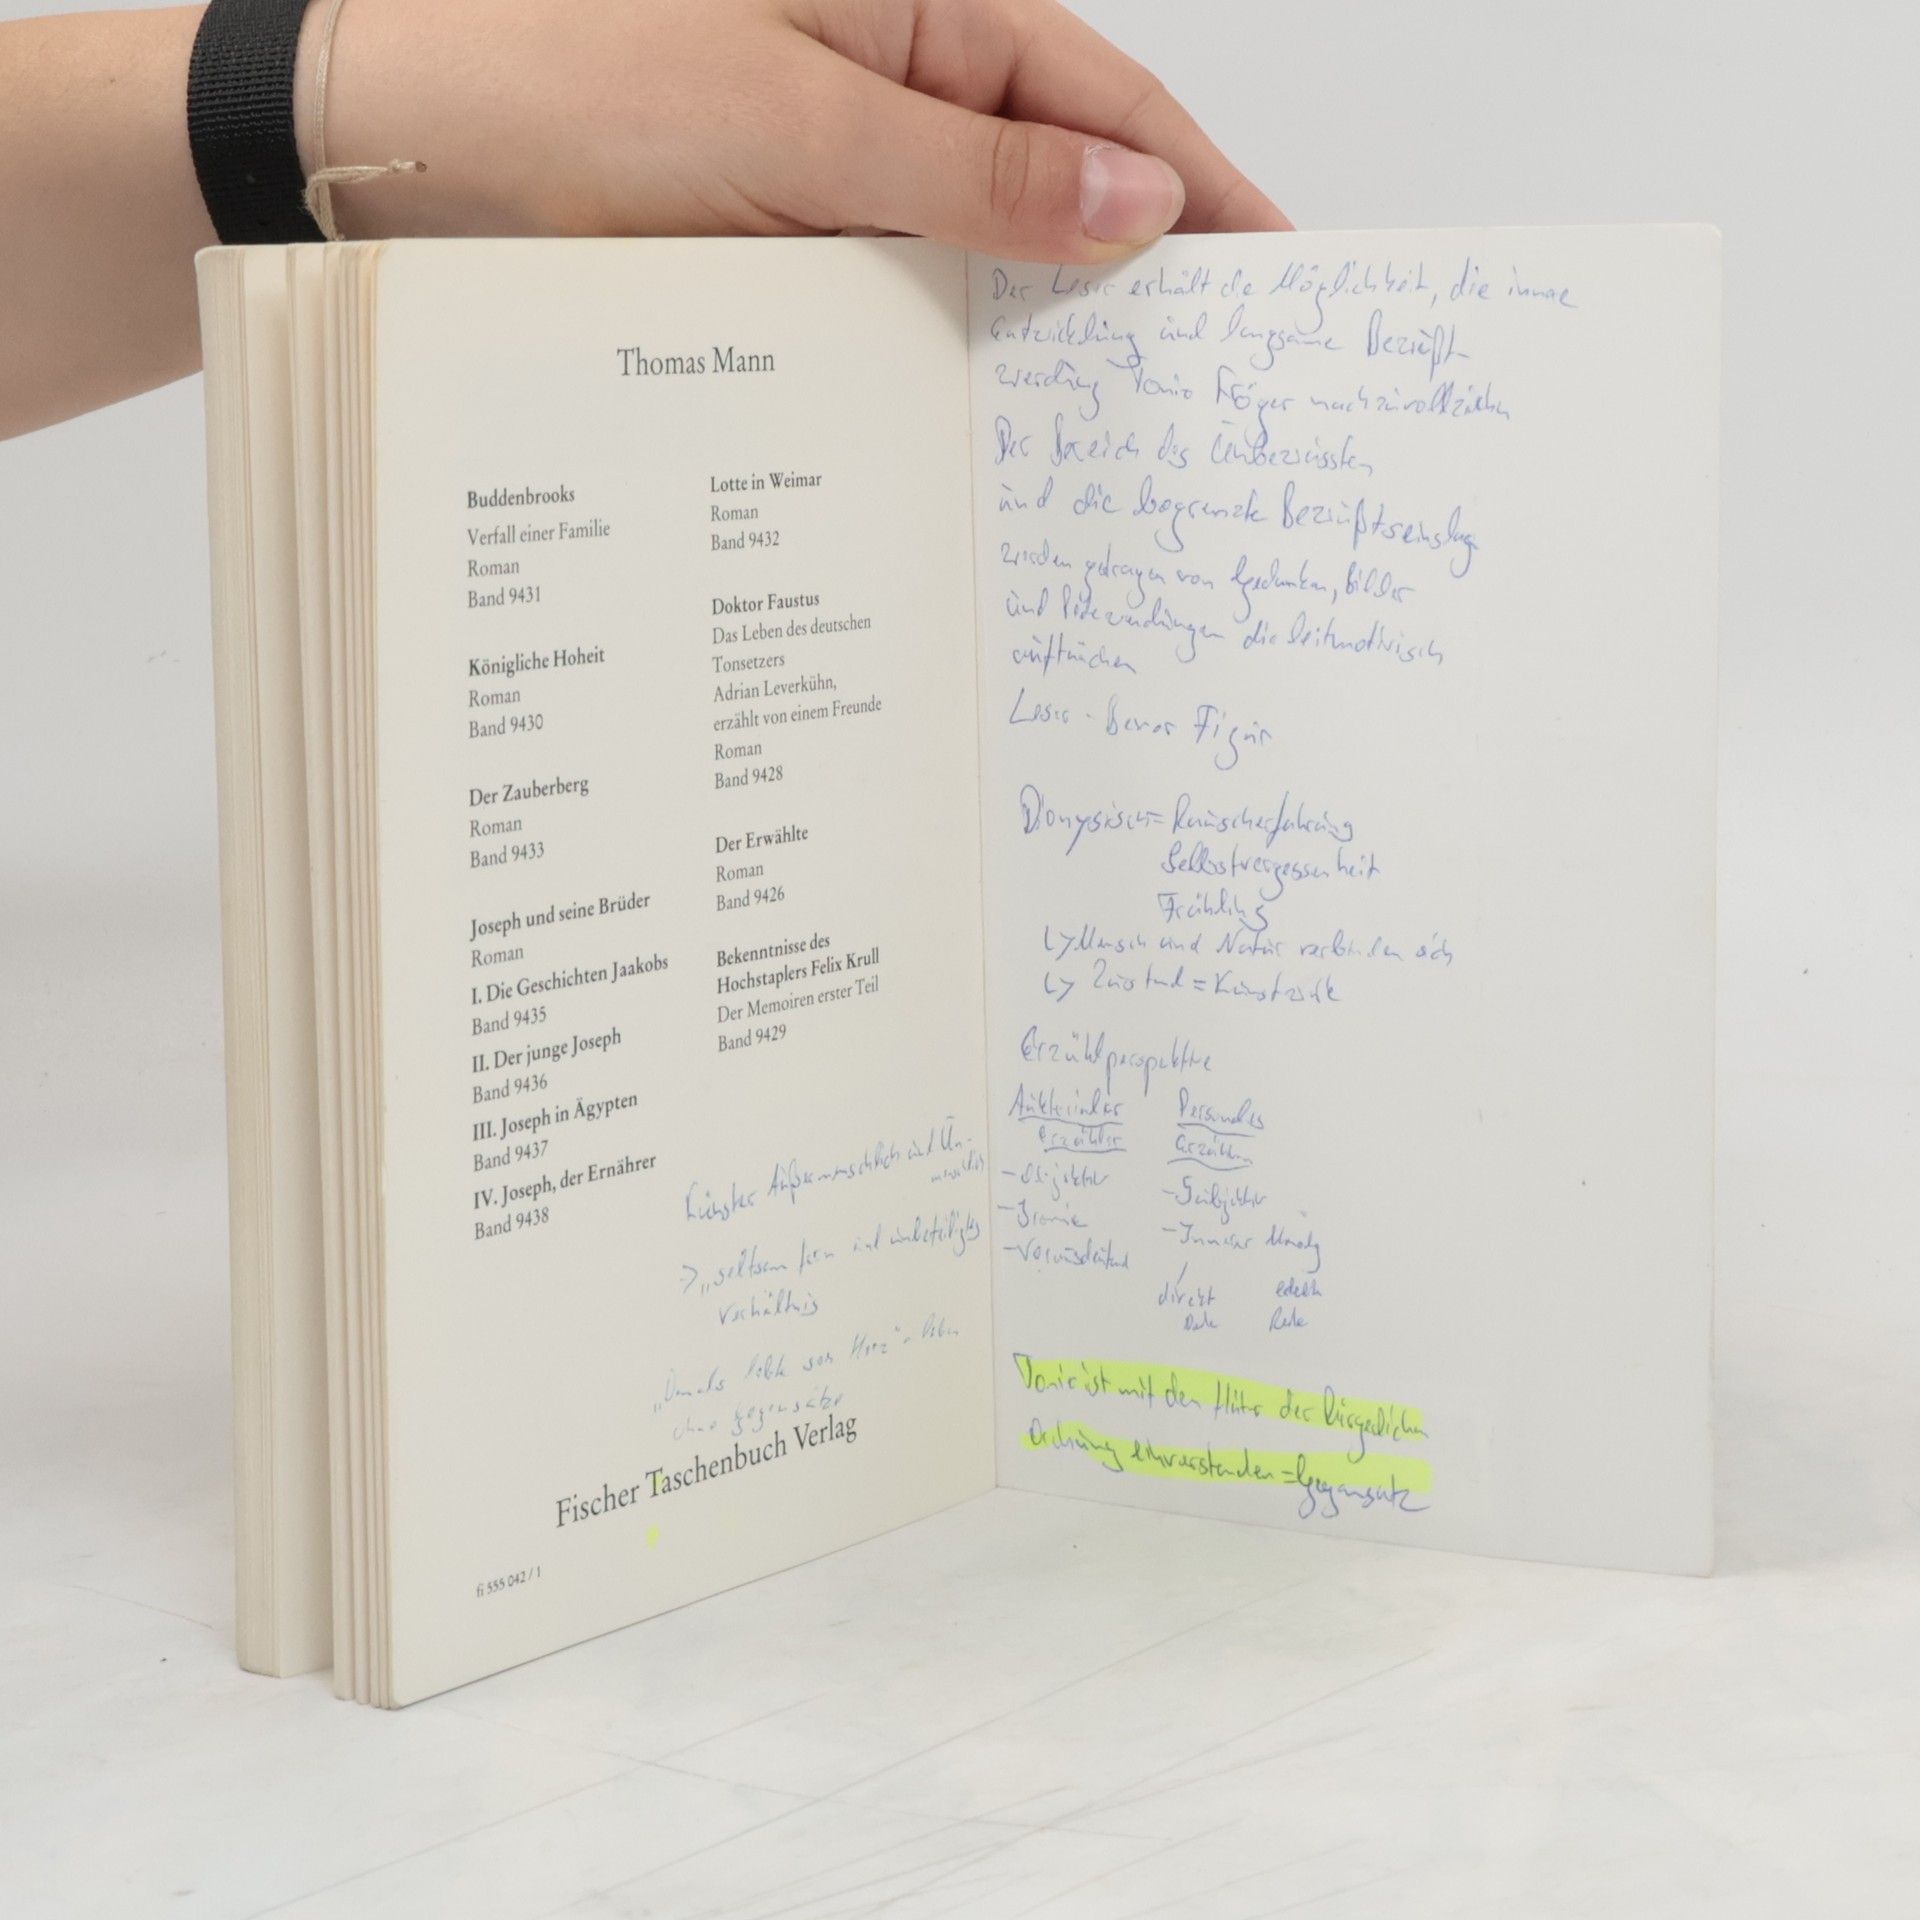 Thomas Mann
Buddenbrooks
Verfall einer Familie
Roman
Band 9431
Königliche Hoheit
Roman
Band 9430
Der Zauberberg
Roman
Band 9433
Joseph und seine Brüder
Roman
I. Die Geschichten Jaakobs
Band 9435
II. Der junge Joseph
Band 9436
III. Joseph in Ägypten
Band 9437
IV. Joseph, der Ernährer
Band 9438
Lotte in Weimar
Roman
Band 9432
Doktor Faustus
Das Leben des deutschen
Tonsetzers
Adrian Leverkühn,
erzählt von einem Freunde
Roman
Band 9428
Der Erwählte
Roman
Band 9426
Bekenntnisse des
Hochstaplers Felix Krull
Der Memoiren erster Teil
Band 9429
Künstler Außermenschlich und Un-
menschlich
→ „seltsam fern und unbeteiligtes
Verhältnis
„Damals lebte sein Herz" = leben
ohne Gegensätze
Fischer Taschenbuch Verlag
fi 555 042 / 1
Der Leser erhält die Möglichkeit, die innere
Entwicklung und langsame Bewußt-
werdung Tonio Kröger nachzuvollziehen
Der Bereich des Unbewussten
und die begrenzte Bewußtseinslage
werden getragen von Gedanken, Bilder
und Redewendungen die leitmotivisch
auftauchen
Leser - Figur
Dionysisch = Rauscherfahrung
Selbstvergessenheit
Frühling
↳ Mensch und Natur verbinden sich
↳ Zustand = Kunstwerk
Erzählperspektive
Auktorialer
Erzähler
- Objektiv
- Ironie
- Vorausdeutend
Personales
Erzählen
- Subjektiv
- Innerer Monolog
direkt
Rede
erlebte
Rede
Tonio ist mit den Hüter der bürgerlichen
Ordnung einverstanden = Gegensatz